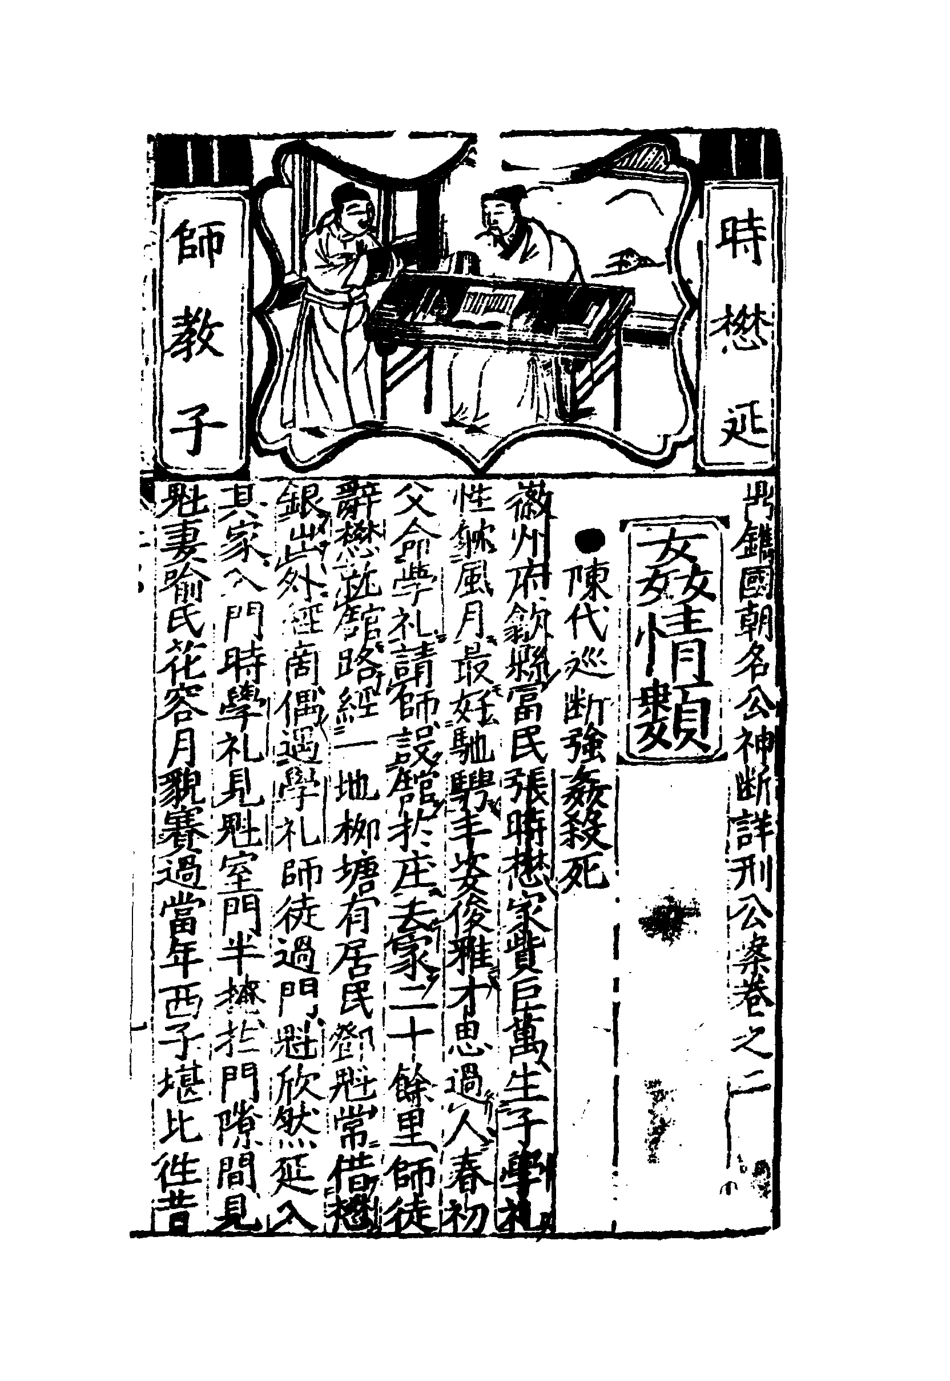 時懋延
師教子
鼎鐫國朝名公神断詳刑公案卷之二
姦情類
●陳代巡断強姦殺死
徽州府歙縣富民張時懋家貲巨萬生子學礼
性躭風月最好馳騁丰姿俊雅才思過人春初
父命學礼請師設館於庄去家二十餘里師徒
辭懋赴館路經一地柳塘有居民鄧魁常借懋
銀出外經商偶遇學礼師徒過門魁欣然延入
其家入門時學礼見魁室門半掩於門隙間見
魁妻喻氏花容月貌賽過當年西子堪比徃昔